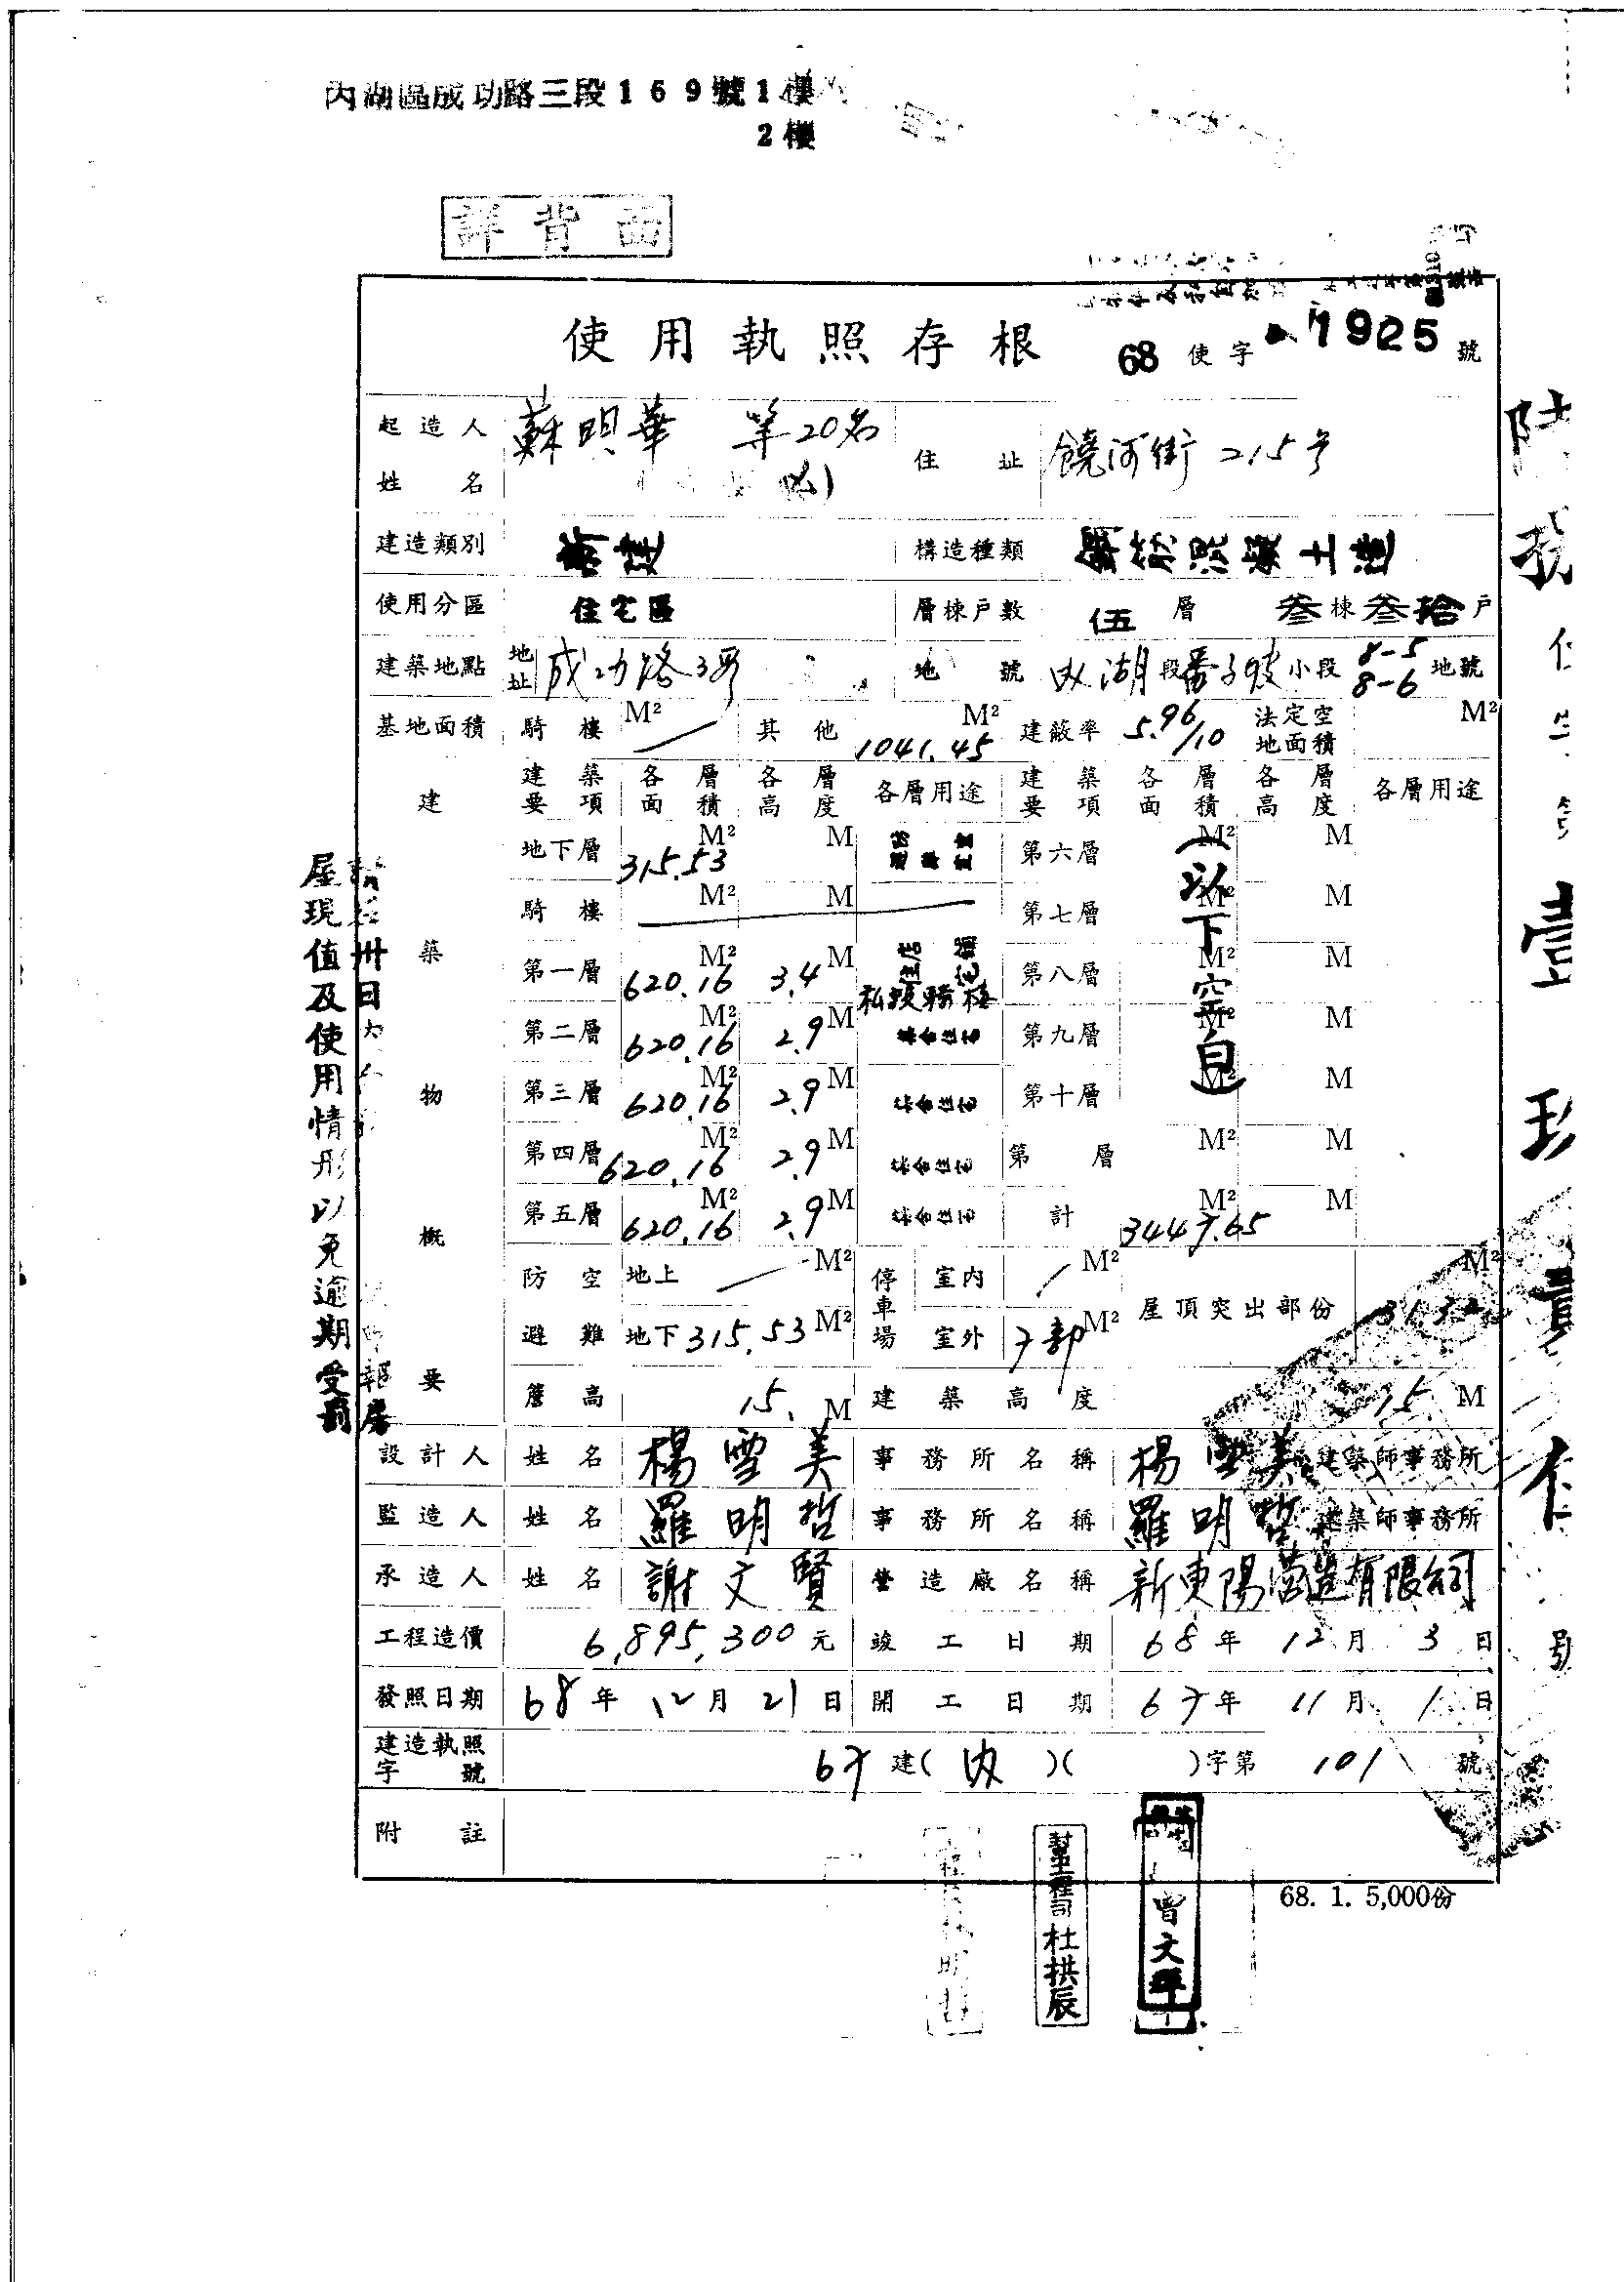 內湖區成功路三段169號1樓
2樓
詳背面
使用執照存根 68使字1925號
起造人姓名 蘇 華 等20名 住址 饒河街215号
建造類別 新建 構造種類 鋼筋混凝土造
使用分區 住宅區 層棟戶數 伍層 叁棟叁拾戶
建築地點 地址 成功路3段 地號 內湖段番子坡小段8-5 8-6地號
基地面積 騎樓 M² 其他 1041.45 M² 建蔽率 5.96/10 法定空地面積 M²
建築物概要
建築要項 各層面積 各層高度 各層用途 建築要項 各層面積 各層高度 各層用途
地下層 315.53 M² M 第六層 M² M
騎樓 M² M 第七層 M² M
第一層 620.16 M² 3.4 M 店舖住宅 第八層 M² M
第二層 620.16 M² 2.9 M 集合住宅 第九層 M² M
第三層 620.16 M² 2.9 M 集合住宅 第十層 M² M
第四層 620.16 M² 2.9 M 集合住宅 第 層 M² M
第五層 620.16 M² 2.9 M 集合住宅 計 M² M
(以下空白
防空避難 地上 M² 停車場 室內 M² 屋頂突出部份 M²
地下 315.53 M² 室外 M²
簷高 15. M 建築高度 15 M
設計人 姓名 楊雪美 事務所名稱 楊雪美建築師事務所
監造人 姓名 羅明哲 事務所名稱 羅明哲建築師事務所
承造人 姓名 謝文賢 營造廠名稱 新東陽營造有限公司
工程造價 6,895,300元 竣工日期 68年12月3日
發照日期 68年12月21日 開工日期 67年11月1日
建造執照字號 67建(內)( )字第101號
附註
68. 1. 5,000份
幫工程司 杜拱辰
曾文
屋現值及使用情形以免逾期受罰